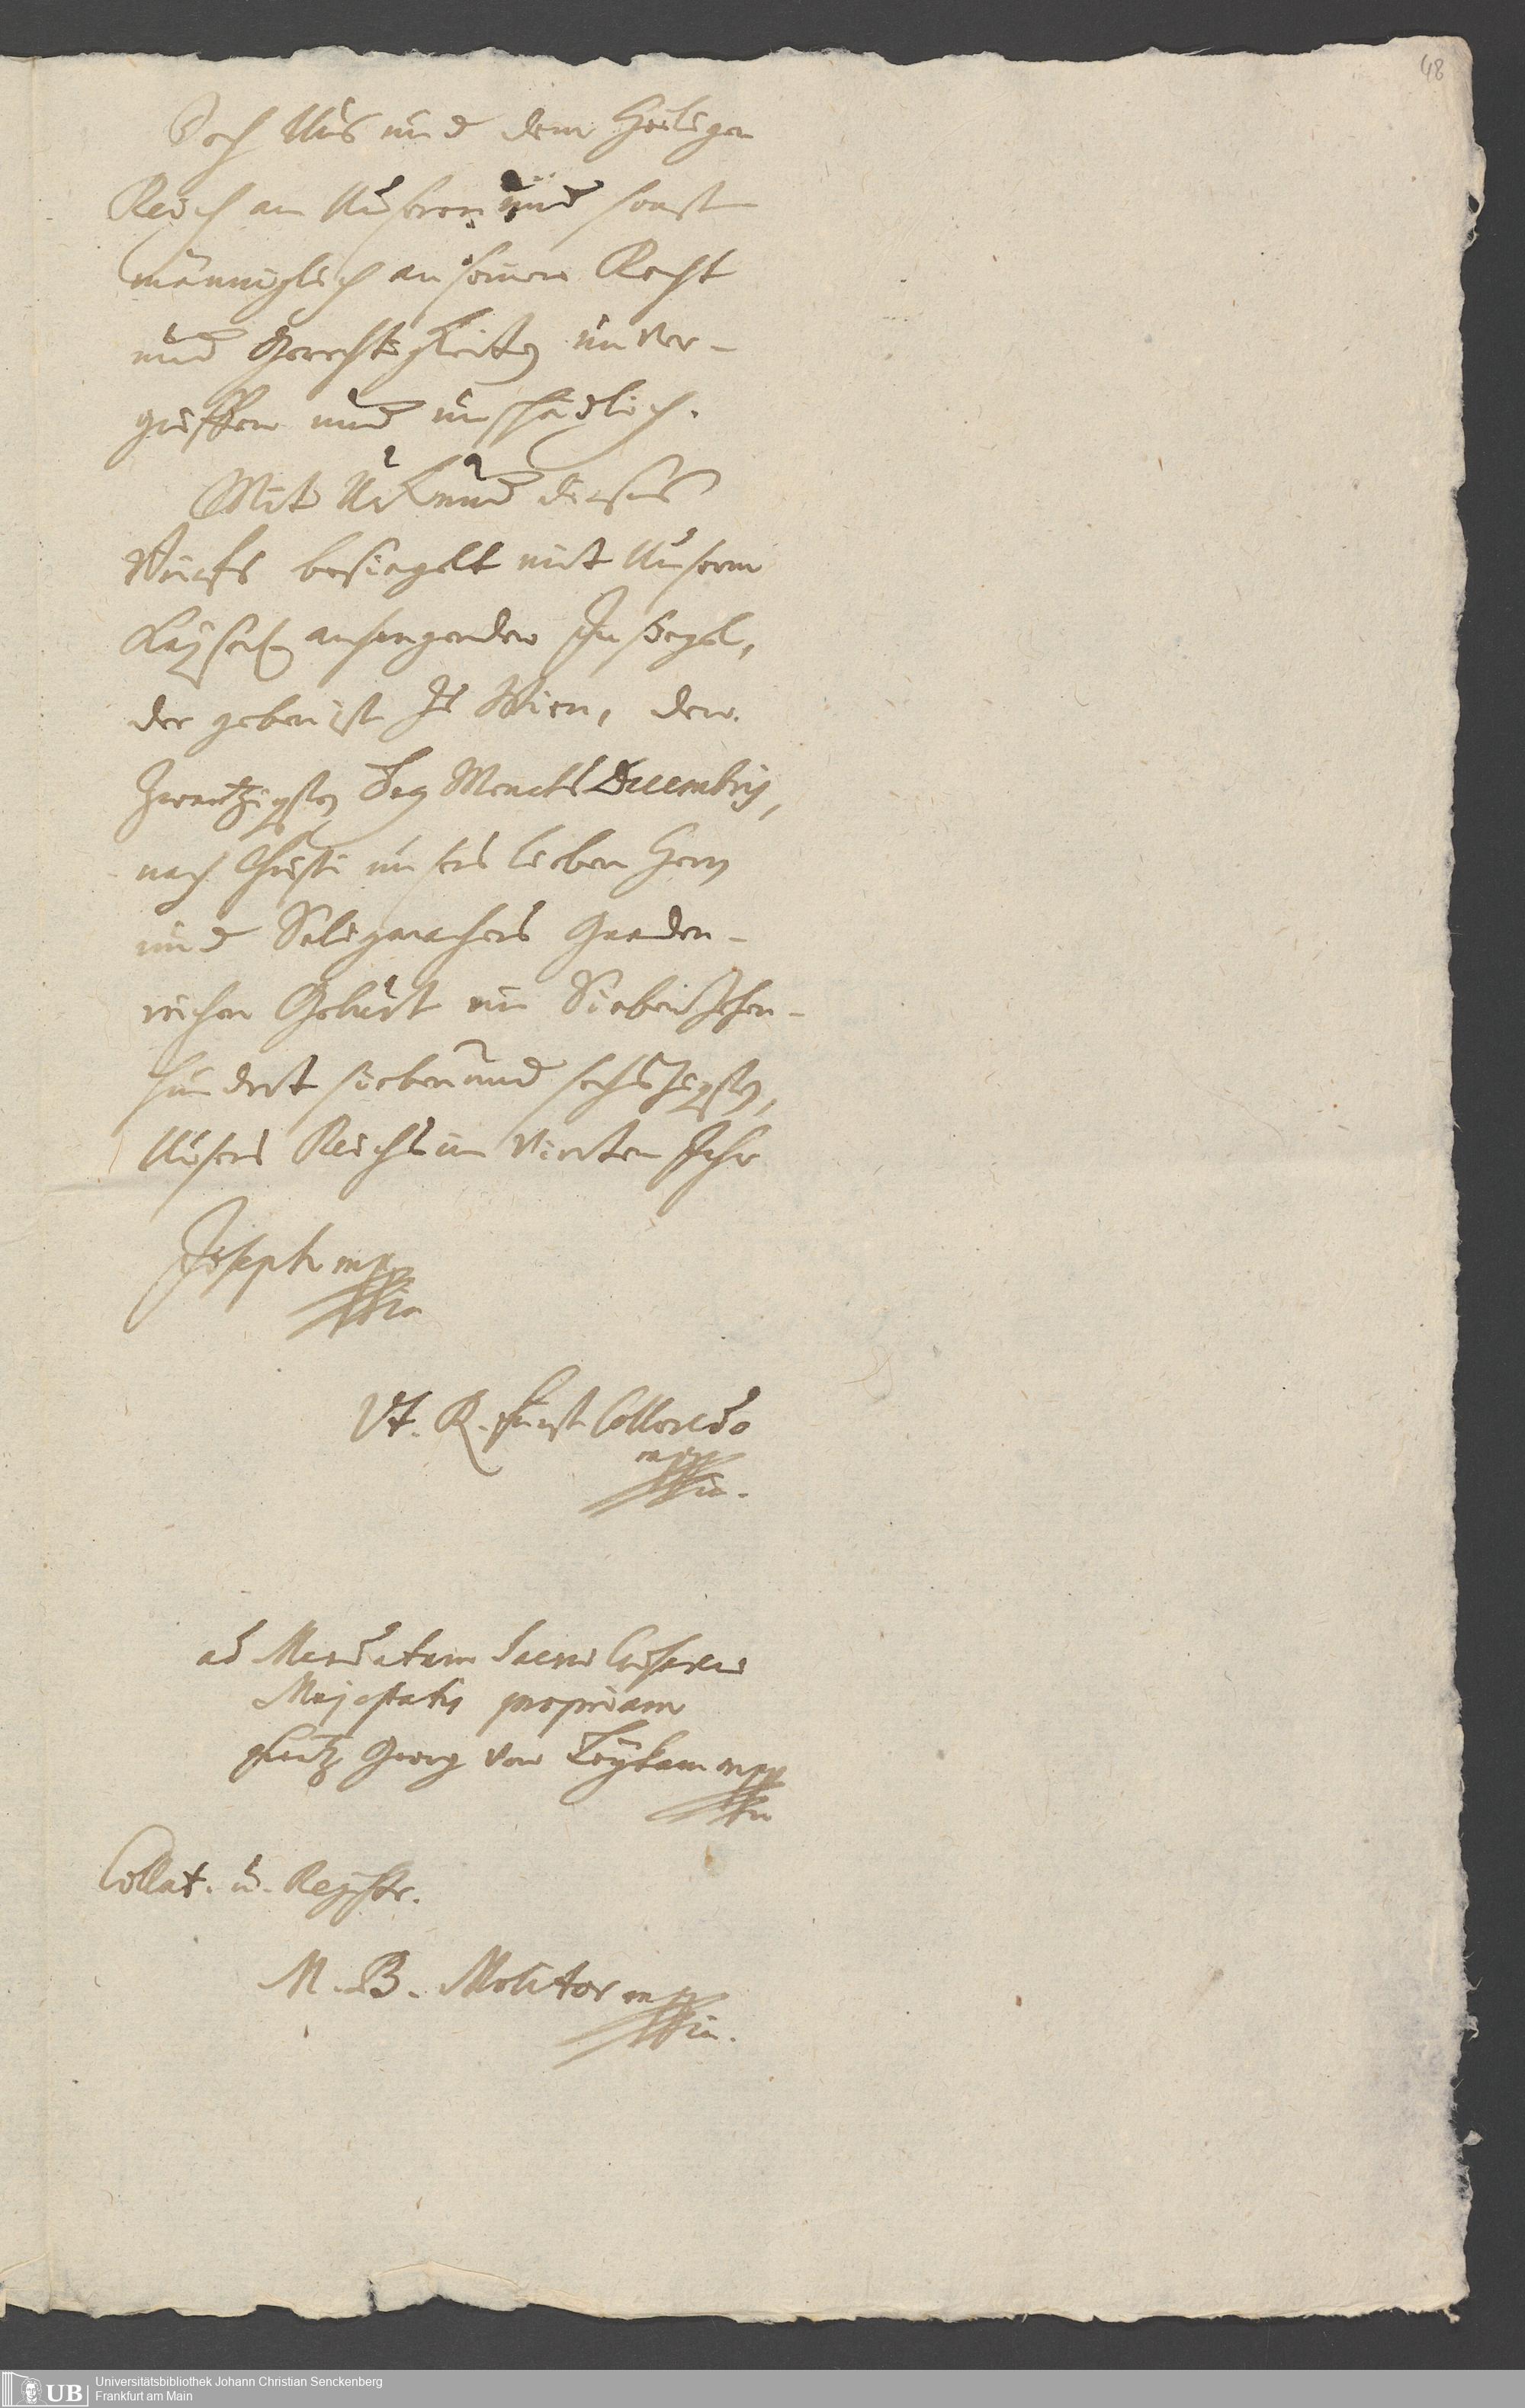 48
Doch Uns und dem Heiligen
Reich an Unseren und sonst
männiglich an seinen Recht
und Gerechtigkeiten unver-
griffen und unschädlich.
Mit Urkund dieses
Briefs besiegelt mit Unserm
Kayserl. anhangenden Insiegel,
der geben ist zu Wien, den
zwantzigsten Tag Monats Decembris,
nach Christi unsers lieben Herrn
und Seligmachers Gnaden-
reichen Geburt im Siebenzehen-
hundert sieben und sechszigsten,
Unsers Reichs im vierten Jahr
Joseph mpp
ria
Vt. R. Fürst Colloredo
mpp
ria.
ad Mandatum Sacrae Caesareae
Majestatis proprium
Frantz Georg von Leykam mpp
ria
Collat. u. Registr.
M. B. Molitor mpp
ria.
UB
Universitätsbibliothek Johann Christian Senckenberg
Frankfurt am Main